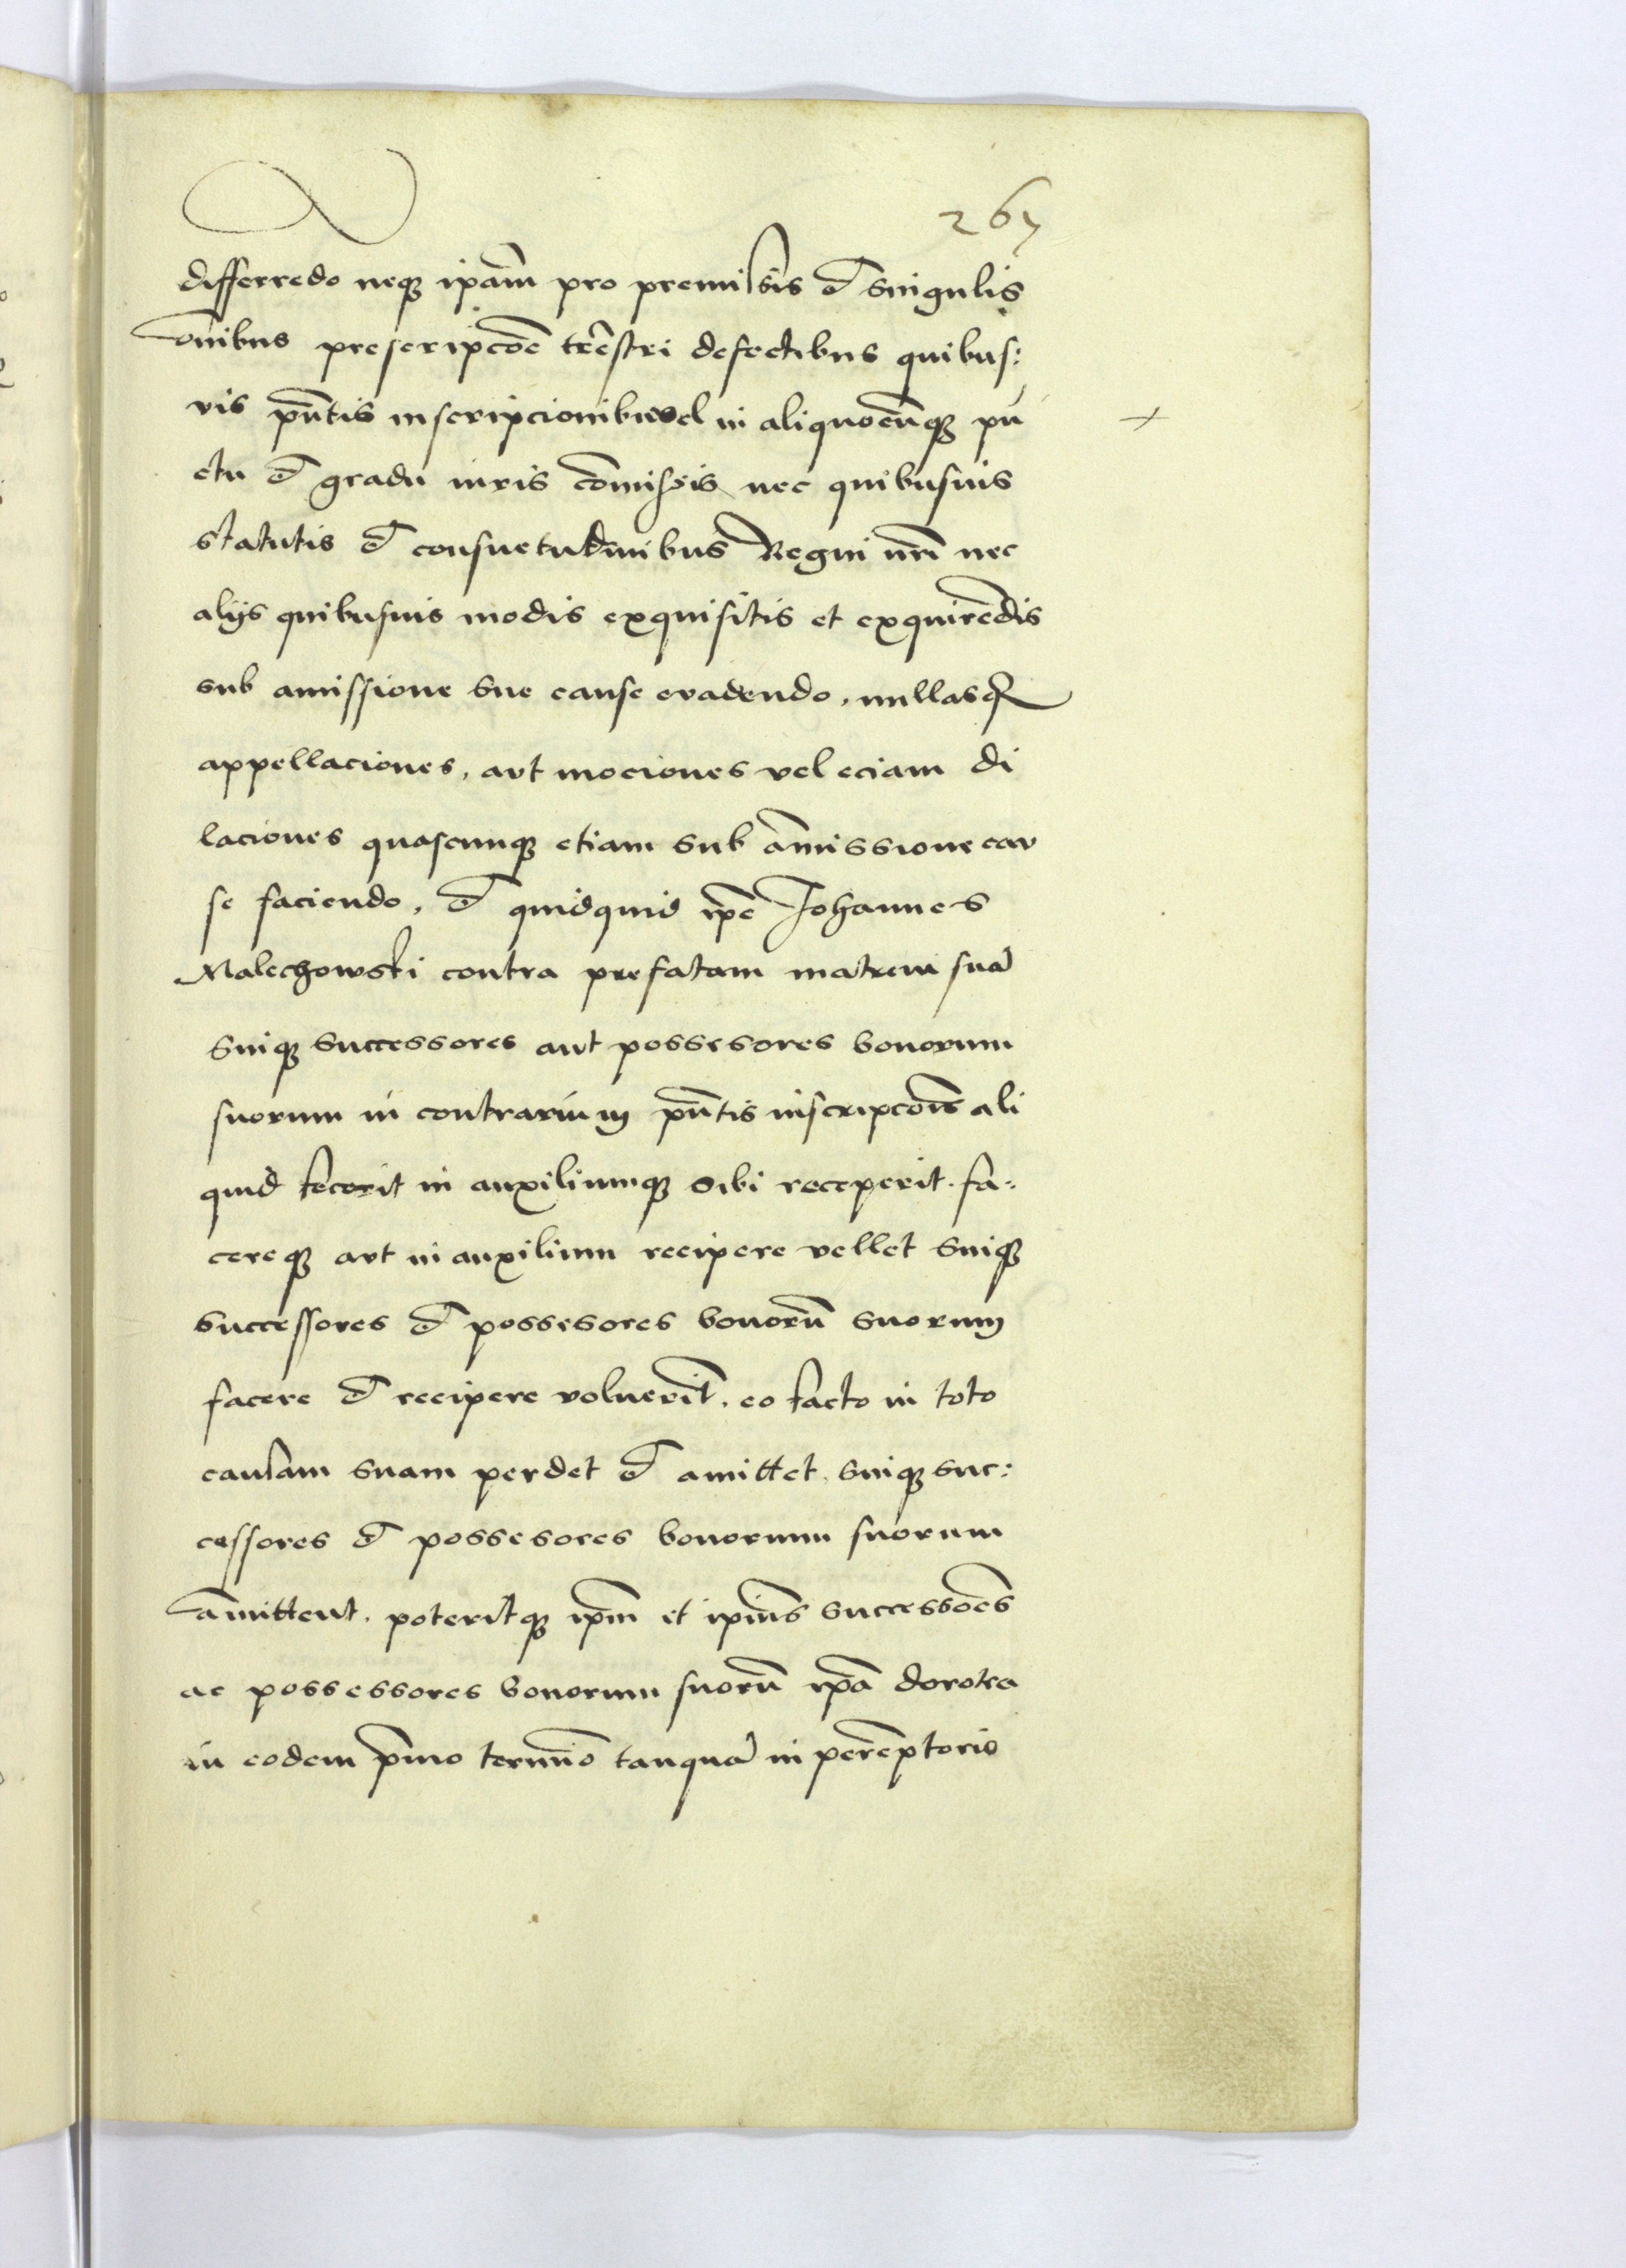 267
differredo neq̃ ipãm pro premissis et singulis
om̃ibus prescripcõe trr̃estri defectibus quibus:
vis pñtis inscripcionibus vel in aliquocũq̃ pũ
ctu et gradu iuris com̃issis nec quibusuis
statutis et consuetudinibus Regni nri̅ nec
alijs quibusuis modis exquisitis et exquirẽdis
sub amissione sue cause evadendo, nullasq̃
appellaciones, aut mociones vel eciam di
laciones quascunq̃ etiam sub am̃issione cau
se faciendo, et quidquid ip̃e Johannes
Malechowski contra prefatam matrem suã
suiq̃ successores aut possesores bonorum
suorum in contrarium pñtis inscripcõis ali
quid fecerit in auxiliumq̃ sibi receperit. fa:
cereq̃ aut in auxilium recipere vellet suiq̃
successores et possesores bonorũ suorum
facere et recipere voluerĩt. eo facto in toto
causam suam perdet et amittet, suiq̃ suc:
cessores et possesores bonorum suorum
am̃ittent. poteritq̃ ip̃m et ipĩus successoẽs
ac possessores bonorum suorũ ip̃a dorotea
in eodem p̃mo termĩo tanquã in perẽptorio